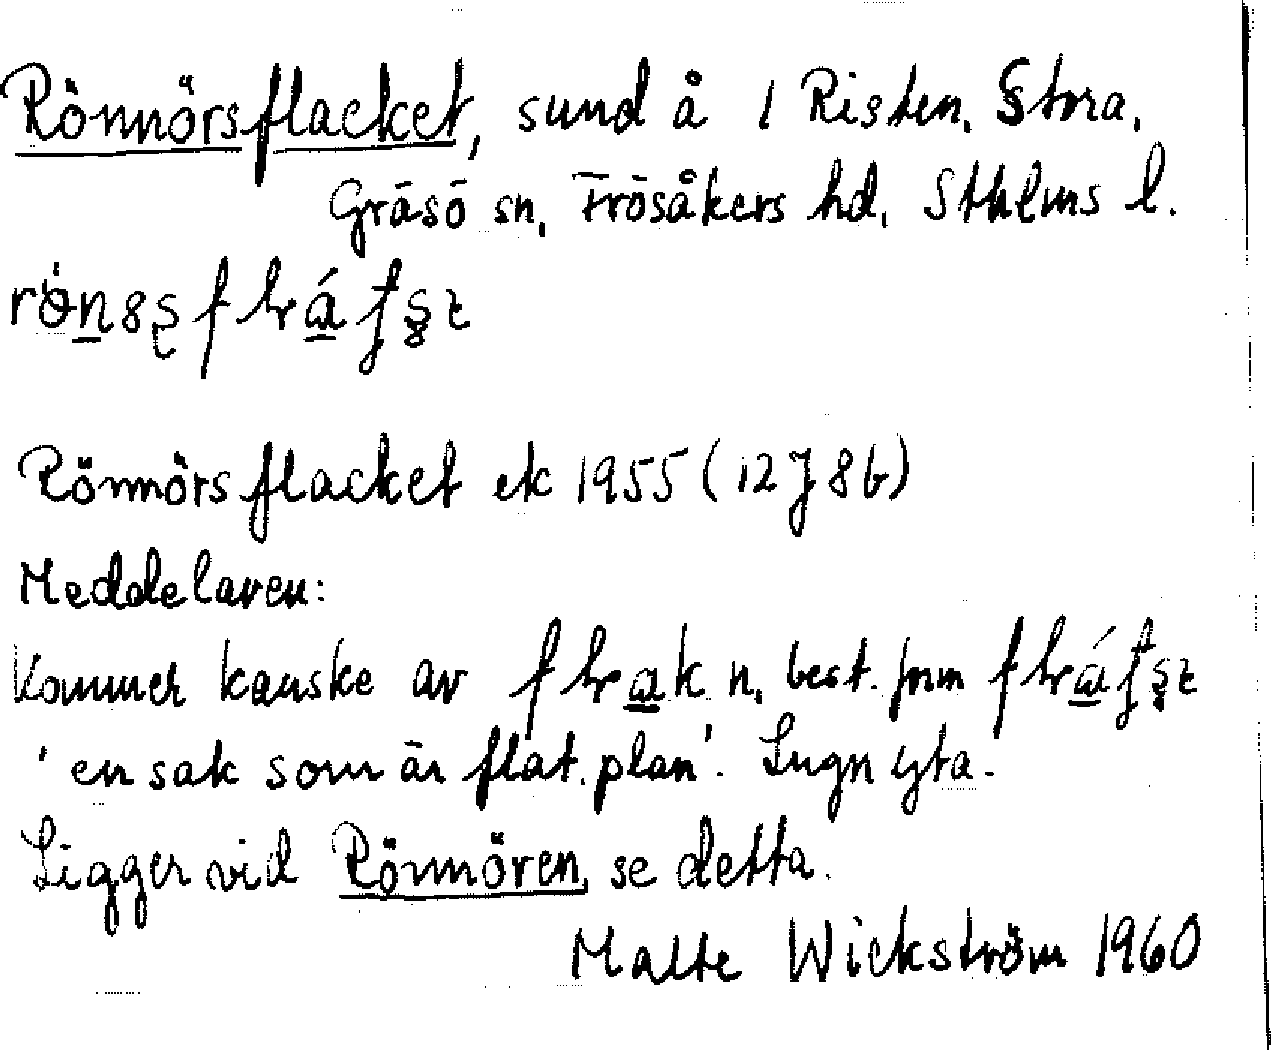 Rönnörsflacket, sund å 1 Risten, Stora,
Gräsö sn, Frösåkers hd, Sthlms l.
Rönnörsflacket ek 1955 (12J 8b)
Meddelaren:
Kommer kanske av n, best. form
'en sak som är flat, plan'. Lugn yta.
Ligger vid Rönnören, se detta.
Malte Wickström 1960